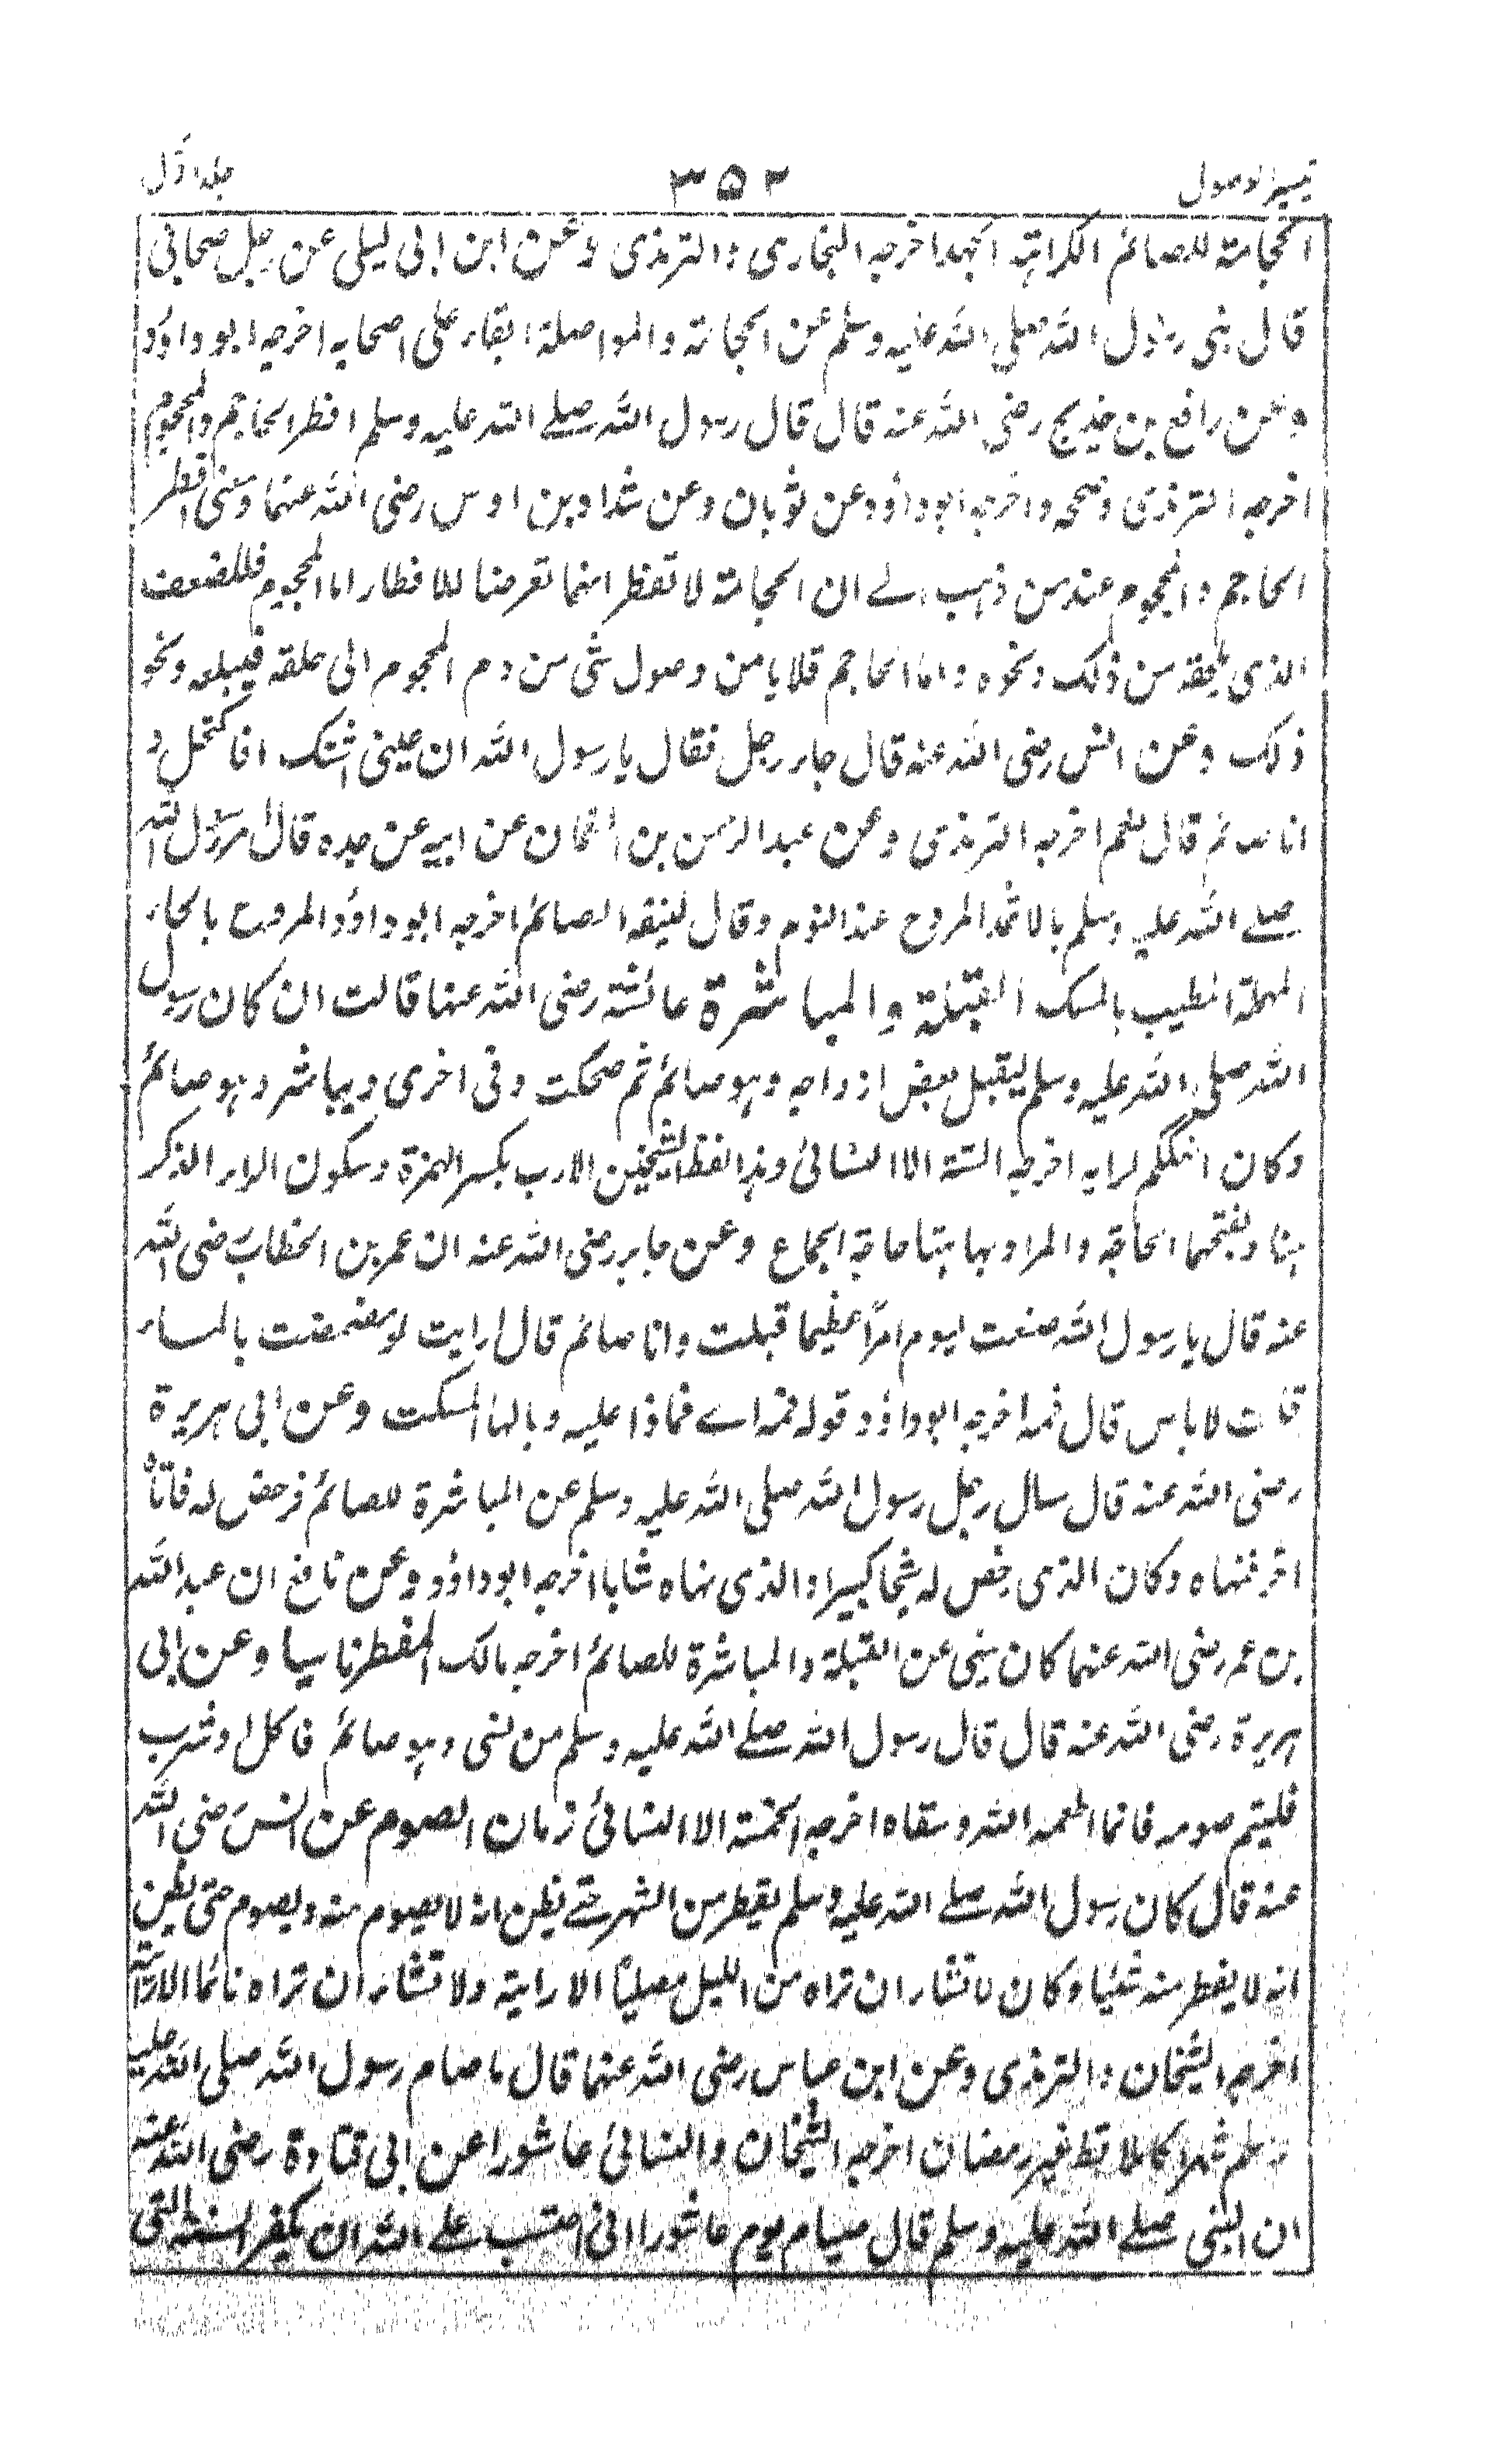 تيسير الوصول ۳۵۲ جلد اوّل
الحجامة للصائم الكراهة الجهد اخرجه البخارى والترمذى وعن ابن ابى ليلى عن رجل صحابى
قال نهى رسول الله صلى الله عليه وسلم عن الحجامة والمواصلة ابقاء على اصحابه اخرجه ابو داؤد
وعن رافع بن خديج رضى الله عنه قال قال رسول الله صلے الله عليه وسلم افطر الحاجم والمحجوم
اخرجه الترمذى وصححه واخرجه ابو داؤد عن ثوبان وعن شداد بن اوس رضى الله عنهما ومعنى افطر
الحاجم والمحجوم عند من ذهب الے ان الحجامة لا تفطر انهما تعرضا للافطار اما المحجوم فللضعف
الذى يلحقه من ذلك ونحوه واما الحاجم فلا يامن وصول شئ من دم المحجوم الى حلقه فيبلعه ونحو
ذلك وعن انس رضى الله عنه قال جاء رجل فقال يا رسول الله ان عينى اشتكت افاكتحل و
انا صائم قال نعم اخرجه الترمذى وعن عبد الرحمن بن النعمان عن ابيه عن جده قال امر رسول الله
صلے الله عليه وسلم بالاثمد المروح عند النوم وقال ليتقه الصائم اخرجه ابو داؤد المروح بالحاء
المهملة المطيب بالمسك القبلة والمباشرة عائشة رضى الله عنها قالت ان كان رسول
الله صلى الله عليه وسلم ليقبل بعض ازواجه وهو صائم ثم ضحكت وفى اخرى ويباشر وهو صائم
وكان املككم لاربه اخرجه الستة الا النسائى وهذا لفظ الشيخين الارب بكسر الهمزة وسكون الراء الذكر
هنا وبفتحهما الحاجة والمراد بها هنا حاجة الجماع وعن جابر رضى الله عنه ان عمر بن الخطاب رضى الله
عنه قال يا رسول الله صنعت اليوم امرا عظيما قبلت وانا صائم قال ارايت لو مضمضت بالماء
قلت لا باس قال فمه اخرجه ابو داؤد قوله فمه اے فماذا عليه وبالهاء السكت وعن ابى هريرة
رضى الله عنه قال سال رجل رسول الله صلى الله عليه وسلم عن المباشرة للصائم فرخص له فاتاه
اخر فنهاه وكان الذى رخص له شيخا كبيرا والذى نهاه شابا اخرجه ابو داؤد وعن نافع ان عبد الله
بن عمر رضى الله عنهما كان ينهى عن القبلة والمباشرة للصائم اخرجه مالك المفطر ناسيا وعن ابى
هريرة رضى الله عنه قال قال رسول الله صلے الله عليه وسلم من نسى وهو صائم فاكل او شرب
فليتم صومه فانما اطعمه الله وسقاه اخرجه الخمسة الا النسائى زمان الصوم عن انس رضى الله
عنه قال كان رسول الله صلے الله عليه وسلم يفطر من الشهر حتے نظن انه لا يصوم منه ويصوم حتى نظن
انه لا يفطر منه شيئا وكان لا تشاء ان تراه من الليل مصليا الا رايته ولا تشاء ان تراه نائما الا رايته
اخرجه الشيخان والترمذى وعن ابن عباس رضى الله عنهما قال ما صام رسول الله صلى الله عليه
وسلم شهرا كاملا قط غير رمضان اخرجه الشيخان والنسائى عاشورا عن ابى قتادة رضى الله عنه
ان النبى صلے الله عليه وسلم قال صيام يوم عاشورا انى احتسب علے الله ان يكفر السنة التى